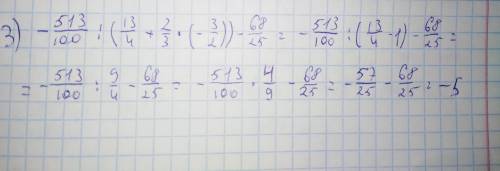 3) -513/100 : (13/4 + 2/3 · (-3/2)) - 68/25 = -513/100 : (13/4 - 1) - 68/25 =
= -513/100 : 9/4 - 68/25 = -513/100 · 4/9 - 68/25 = -57/25 - 68/25 = -5